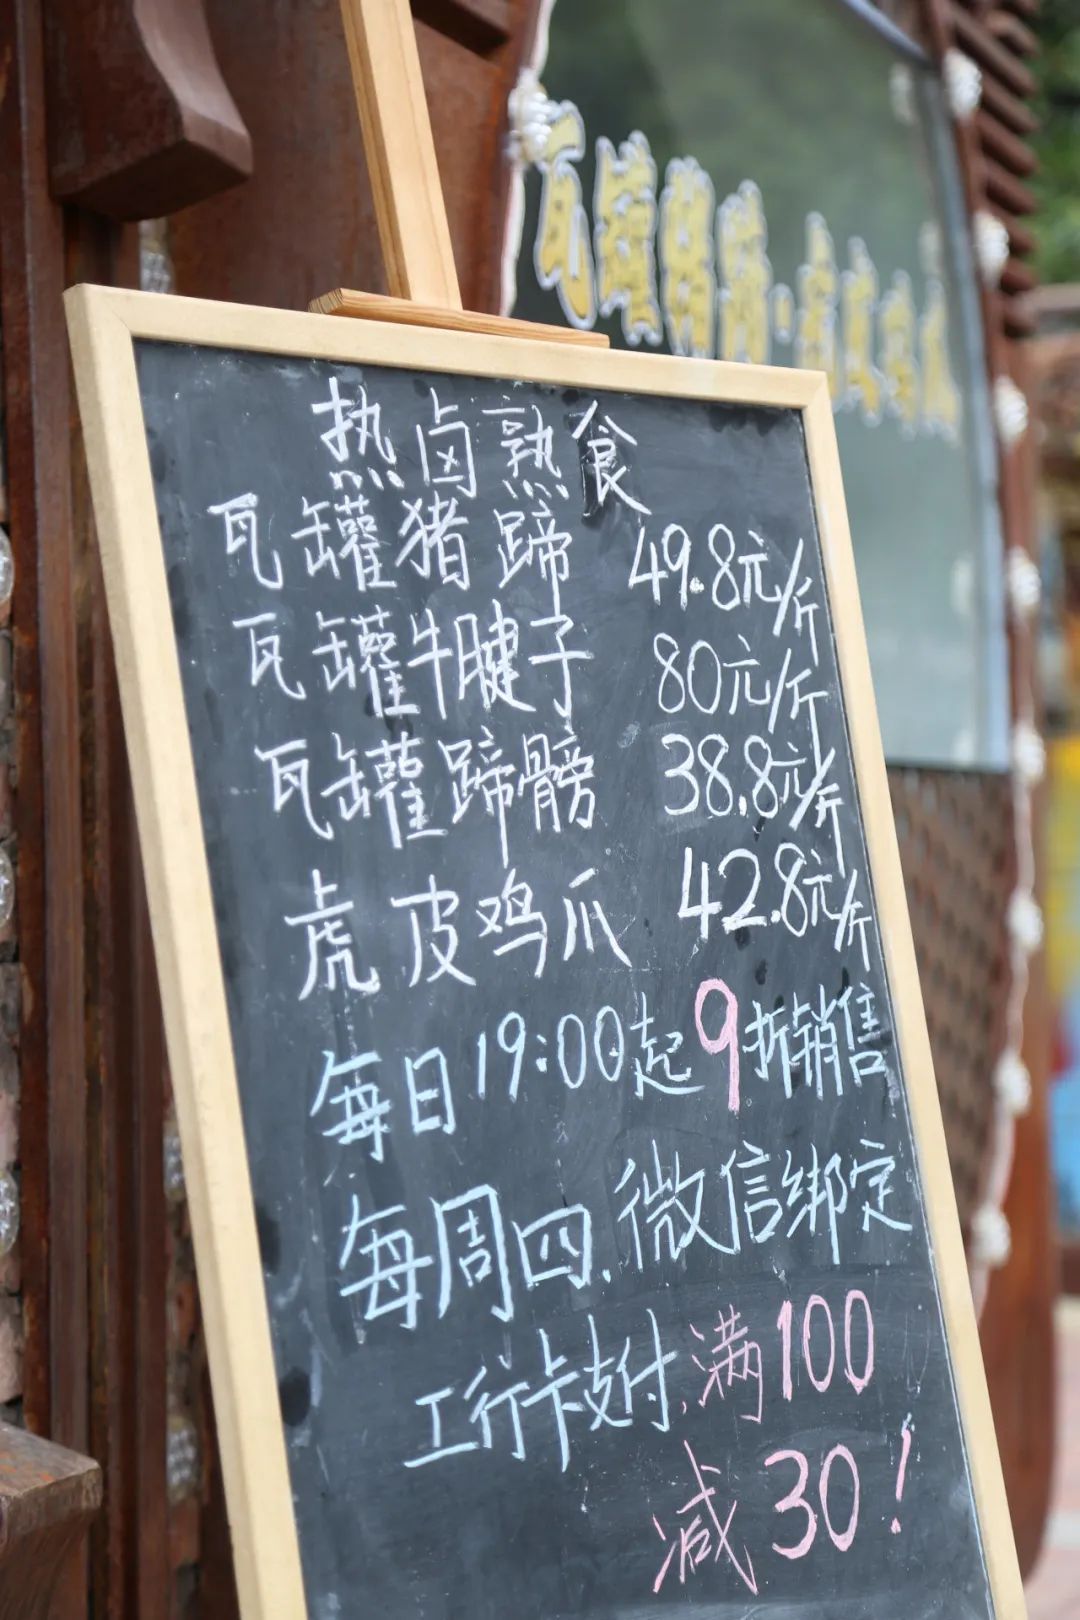 热卤熟食
瓦罐猪蹄 49.8元/斤
瓦罐牛腱子 80元/斤
瓦罐蹄髈 38.8元/斤
虎皮鸡爪 42.8元/斤
每日19:00起9折销售
每周四.微信绑定
工行卡支付.满100
减30!